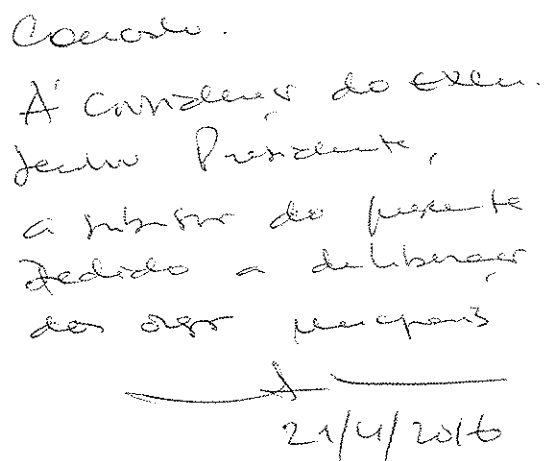 Concordo.
À Consideração do Exmo.
Senhor Presidente,
a submissão do presente
Pedido a deliberação
dos órgãos municipais
21/4/2016